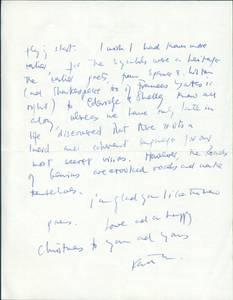 I wish I had known more
earlier for the symbols were a heritage
the earlier poets, from Spenser & Milton
(and Shakespeare too if Frances Yates is
right) to Coleridge & Shelley knew all
along, whereas we have only late in
life discovered that there exists a
learned and coherent language for our
most secret visions. However, the roads
of Genius are crooked roads and make
themselves.
I'm glad you like the new
poems. Love and a happy
Christmas to you and yours